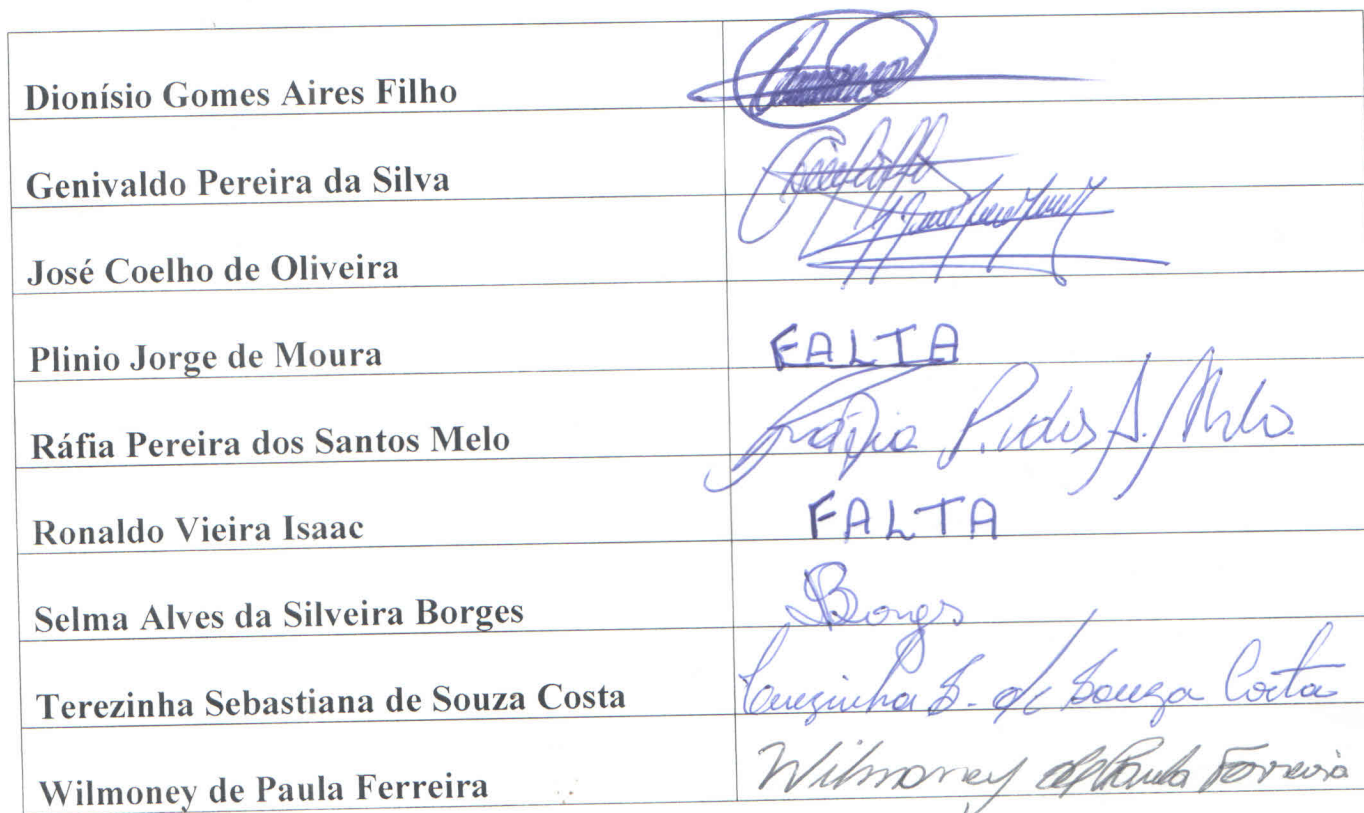 Dionísio Gomes Aires Filho
Genivaldo Pereira da Silva
José Coelho de Oliveira
Plinio Jorge de Moura FALTA
Ráfia Pereira dos Santos Melo Ráfia P. dos S. Melo
Ronaldo Vieira Isaac FALTA
Selma Alves da Silveira Borges SBorges
Terezinha Sebastiana de Souza Costa Terezinha S. de Souza Costa
Wilmoney de Paula Ferreira Wilmoney de Paula Ferreira